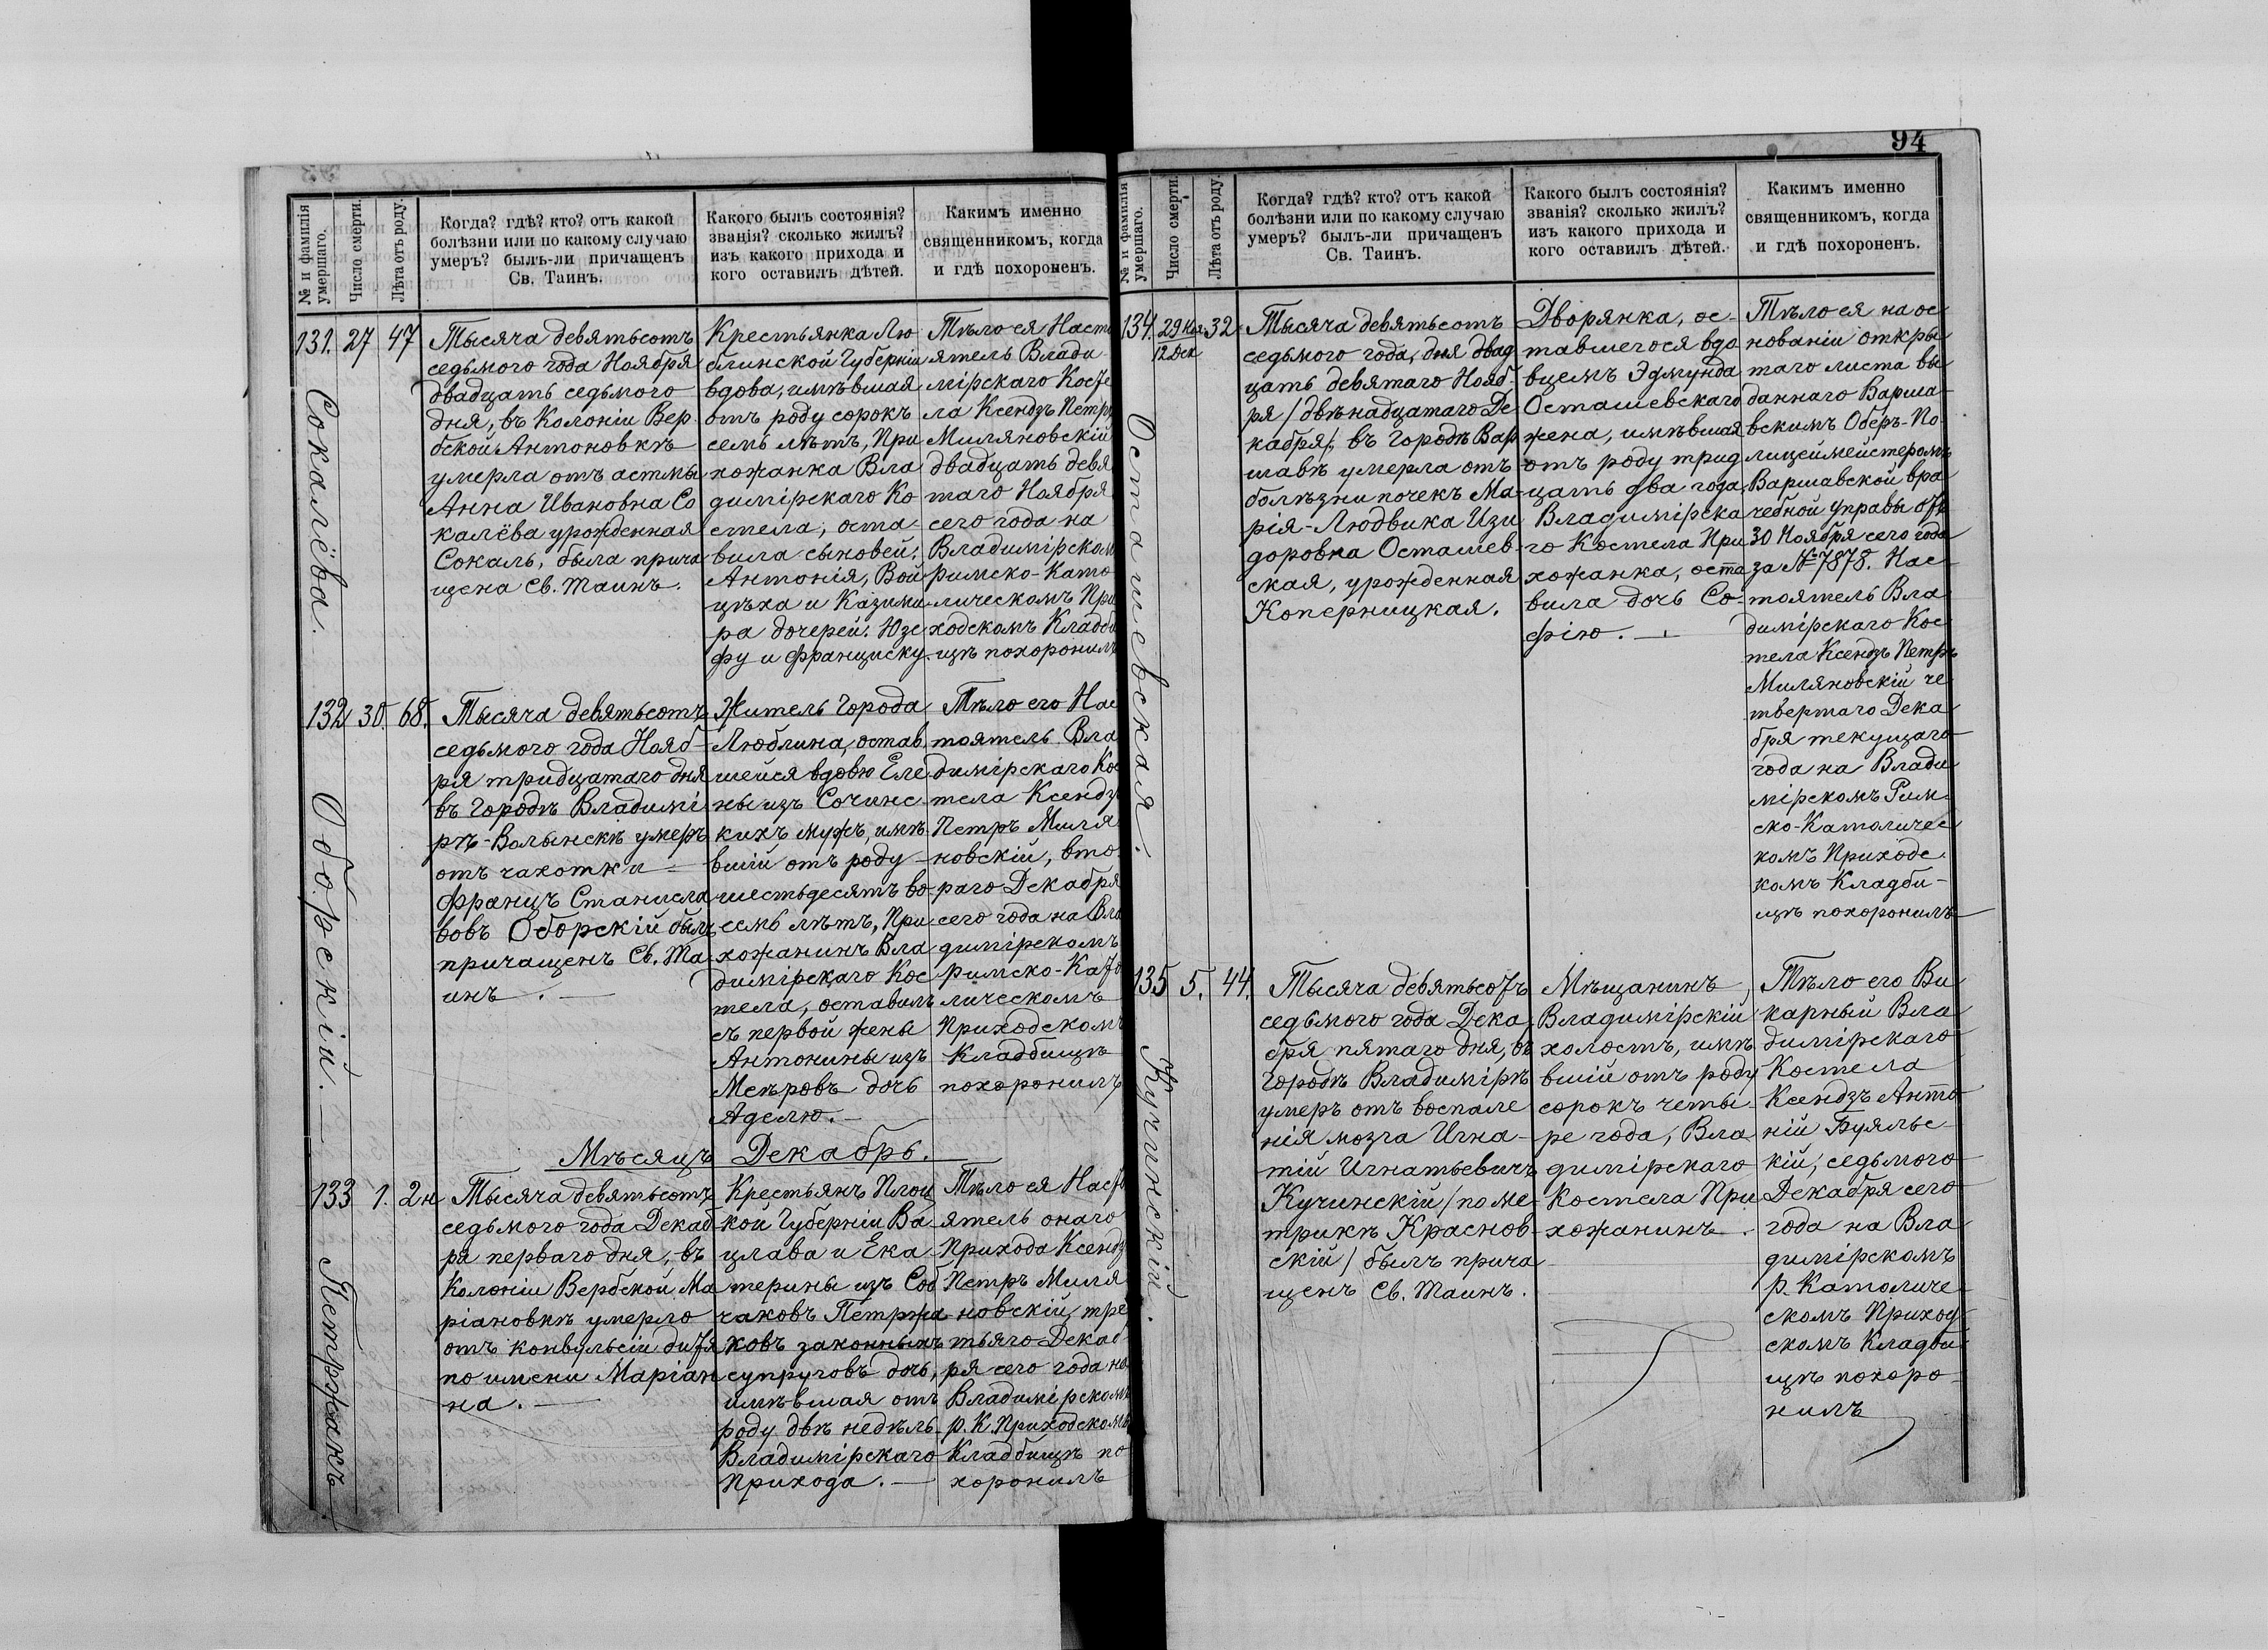 94
№ и фамилія
умершаго.
Число смерти.
Лѣта отъ роду.
Когда? гдѣ? кто? отъ какой
болѣзни или по какому случаю
умеръ? былъ-ли причащенъ
Св. Таинъ.
Какого былъ состоянія?
званія? сколько жилъ?
изъ какого прихода и
кого оставилъ дѣтей.
Какимъ именно
священникомъ, когда
и гдѣ похороненъ.
131. 27 47
Сокалёва.
Тысяча девятьсотъ
седьмого года Ноября
двадцать седьмого
дня, въ Колоніи Вер
бской Антоновкѣ
умерла отъ астмы
Анна Ивановна Со
калёва урожденная
Сокаль, была прича
щена Св. Таинъ.
Крестьянка Лю
блинской Губерніи
вдова, имѣвшая
отъ роду сорокъ
семь лѣтъ, При
хожанка Вла
димірскаго Ко
стела, оста-
вила сыновей:
Антонія, Вой
цѣха и Казими
ра дочерей: Юзе
фу и Франциску.
Тѣло ея Насто
ятель Влади
мірскаго Косте
ла Ксендзъ Петръ
Миляновскій
двадцать девя
таго Ноября
сего года на
Владимірском
Римско-Като
лическомъ При
ходскомъ Кладби
щѣ похоронилъ
132 30. 68.
Оборскій.
Тысяча девятьсотъ
седьмого года Нояб-
ря тридцатаго дня
въ Городѣ Владимі
рѣ-Волынскѣ умеръ
отъ чахотки
Францъ Станисла
вовъ Оборскій былъ
причащенъ Св. Та
инъ.
Житель Города
Люблина, остав
шейся вдовы Еле
ны изъ Сочинс
кихъ мужъ, имѣ
вшій отъ роду
шестьдесятъ во
семь лѣтъ, При
хожанинъ Вла
димірскаго Кос
тела, оставилъ
съ первой жены
Антонины изъ
Меѣровъ дочь
Аделю.
Тѣло его Нас
тоятель Вла
димірскаго Кос
тела Ксендзъ
Петръ Миля
новскій, вто
раго Декабря
сего года на Вла
димірскомъ
Римско-Като
лическомъ
Приходскомъ
Кладбищѣ
похоронилъ
Мѣсяцъ Декабрь.
133 1. 2н
Петржакъ.
Тысяча девятьсотъ
седьмого года Декаб
ря перваго дня, въ
Колоніи Вербской Ма
ріановкѣ умерло
отъ конвульсіи дитя
по имени Маріан
на.
Крестьянъ Плоц
кой Губерніи Ва
цлава и Ека
терины изъ Соб
чаковъ Петржа
ковъ законныхъ
супруговъ дочь,
имѣвшая отъ
роду двѣ недѣль
Владимірскаго
Прихода.
Тѣло ея Насто
ятель онаго
Прихода Ксендзъ
Петръ Миля
новскій, тре
тьяго Декаб
ря сего года на
Владимірскомъ
р. К. Приходскомъ
Кладбищѣ по
хоронилъ
№ и фамилія
умершаго.
Число смерти.
Лѣта отъ роду.
Когда? гдѣ? кто? отъ какой
болѣзни или по какому случаю
умеръ? былъ-ли причащенъ
Св. Таинъ.
Какого былъ состоянія?
званія? сколько жилъ?
изъ какого прихода и
кого оставилъ дѣтей.
Какимъ именно
священникомъ, когда
и гдѣ похороненъ.
134. 29 Ноя. 32.
12 Дек
Осташевская.
Тысяча девятьсотъ
седьмого года, дня двад
цать девятаго Нояб-
ря /двѣнадцатаго Де
кабря/, въ Городѣ Вар
шавѣ умерла отъ
болѣзни почекъ Ма-
рія-Людвика Изи
доровна Осташев-
ская, урожденная
Коперницкая.
Дворянка, ос-
тавшегося вдо
вцемъ Эдмунда
Осташевскаго
жена, имѣвшая
отъ роду трид
цать два года,
Владимірска
го Костела При
хожанка, оста
вила дочь Со-
фію.
Тѣло ея на ос
нованіи откры
таго листа вы
даннаго Варша-
вскимъ Оберъ-По
лицеймейстеромъ
Варшавской вра
чебной Управы отъ
30 Ноября сего года
за № 7878. Нас-
тоятель Вла
димірскаго Кос
тела Ксендзъ Петръ
Миляновскій че
твертаго Дека
бря текущаго
года на Влади
мірскомъ Рим-
ско-Католичес
комъ Приходс
комъ Кладби-
щѣ похоронилъ
135 5. 44.
Кучинскій.
Тысяча девятьсотъ
седьмого года Дека
бря пятаго дня, въ
Городѣ Владимірѣ
умеръ отъ воспале
нія мозга Игна-
тій Игнатьевичъ
Кучинскій /по ме-
трикѣ Краснов-
скій/ былъ прича
щенъ Св. Таинъ.
Мѣщанинъ
Владимірскій
холостъ, имѣ
вшій отъ роду
сорокъ четы-
ре года, Вла
димірскаго
Костела При
хожанинъ.
Тѣло его Ви
карный Вла
димірскаго
Костела
Ксендзъ Анто
ній Буяльс-
кій, седьмого
Декабря сего
года на Вла
димірскомъ
р. Католиче
скомъ Приход
скомъ Кладби
щѣ похоро-
нилъ